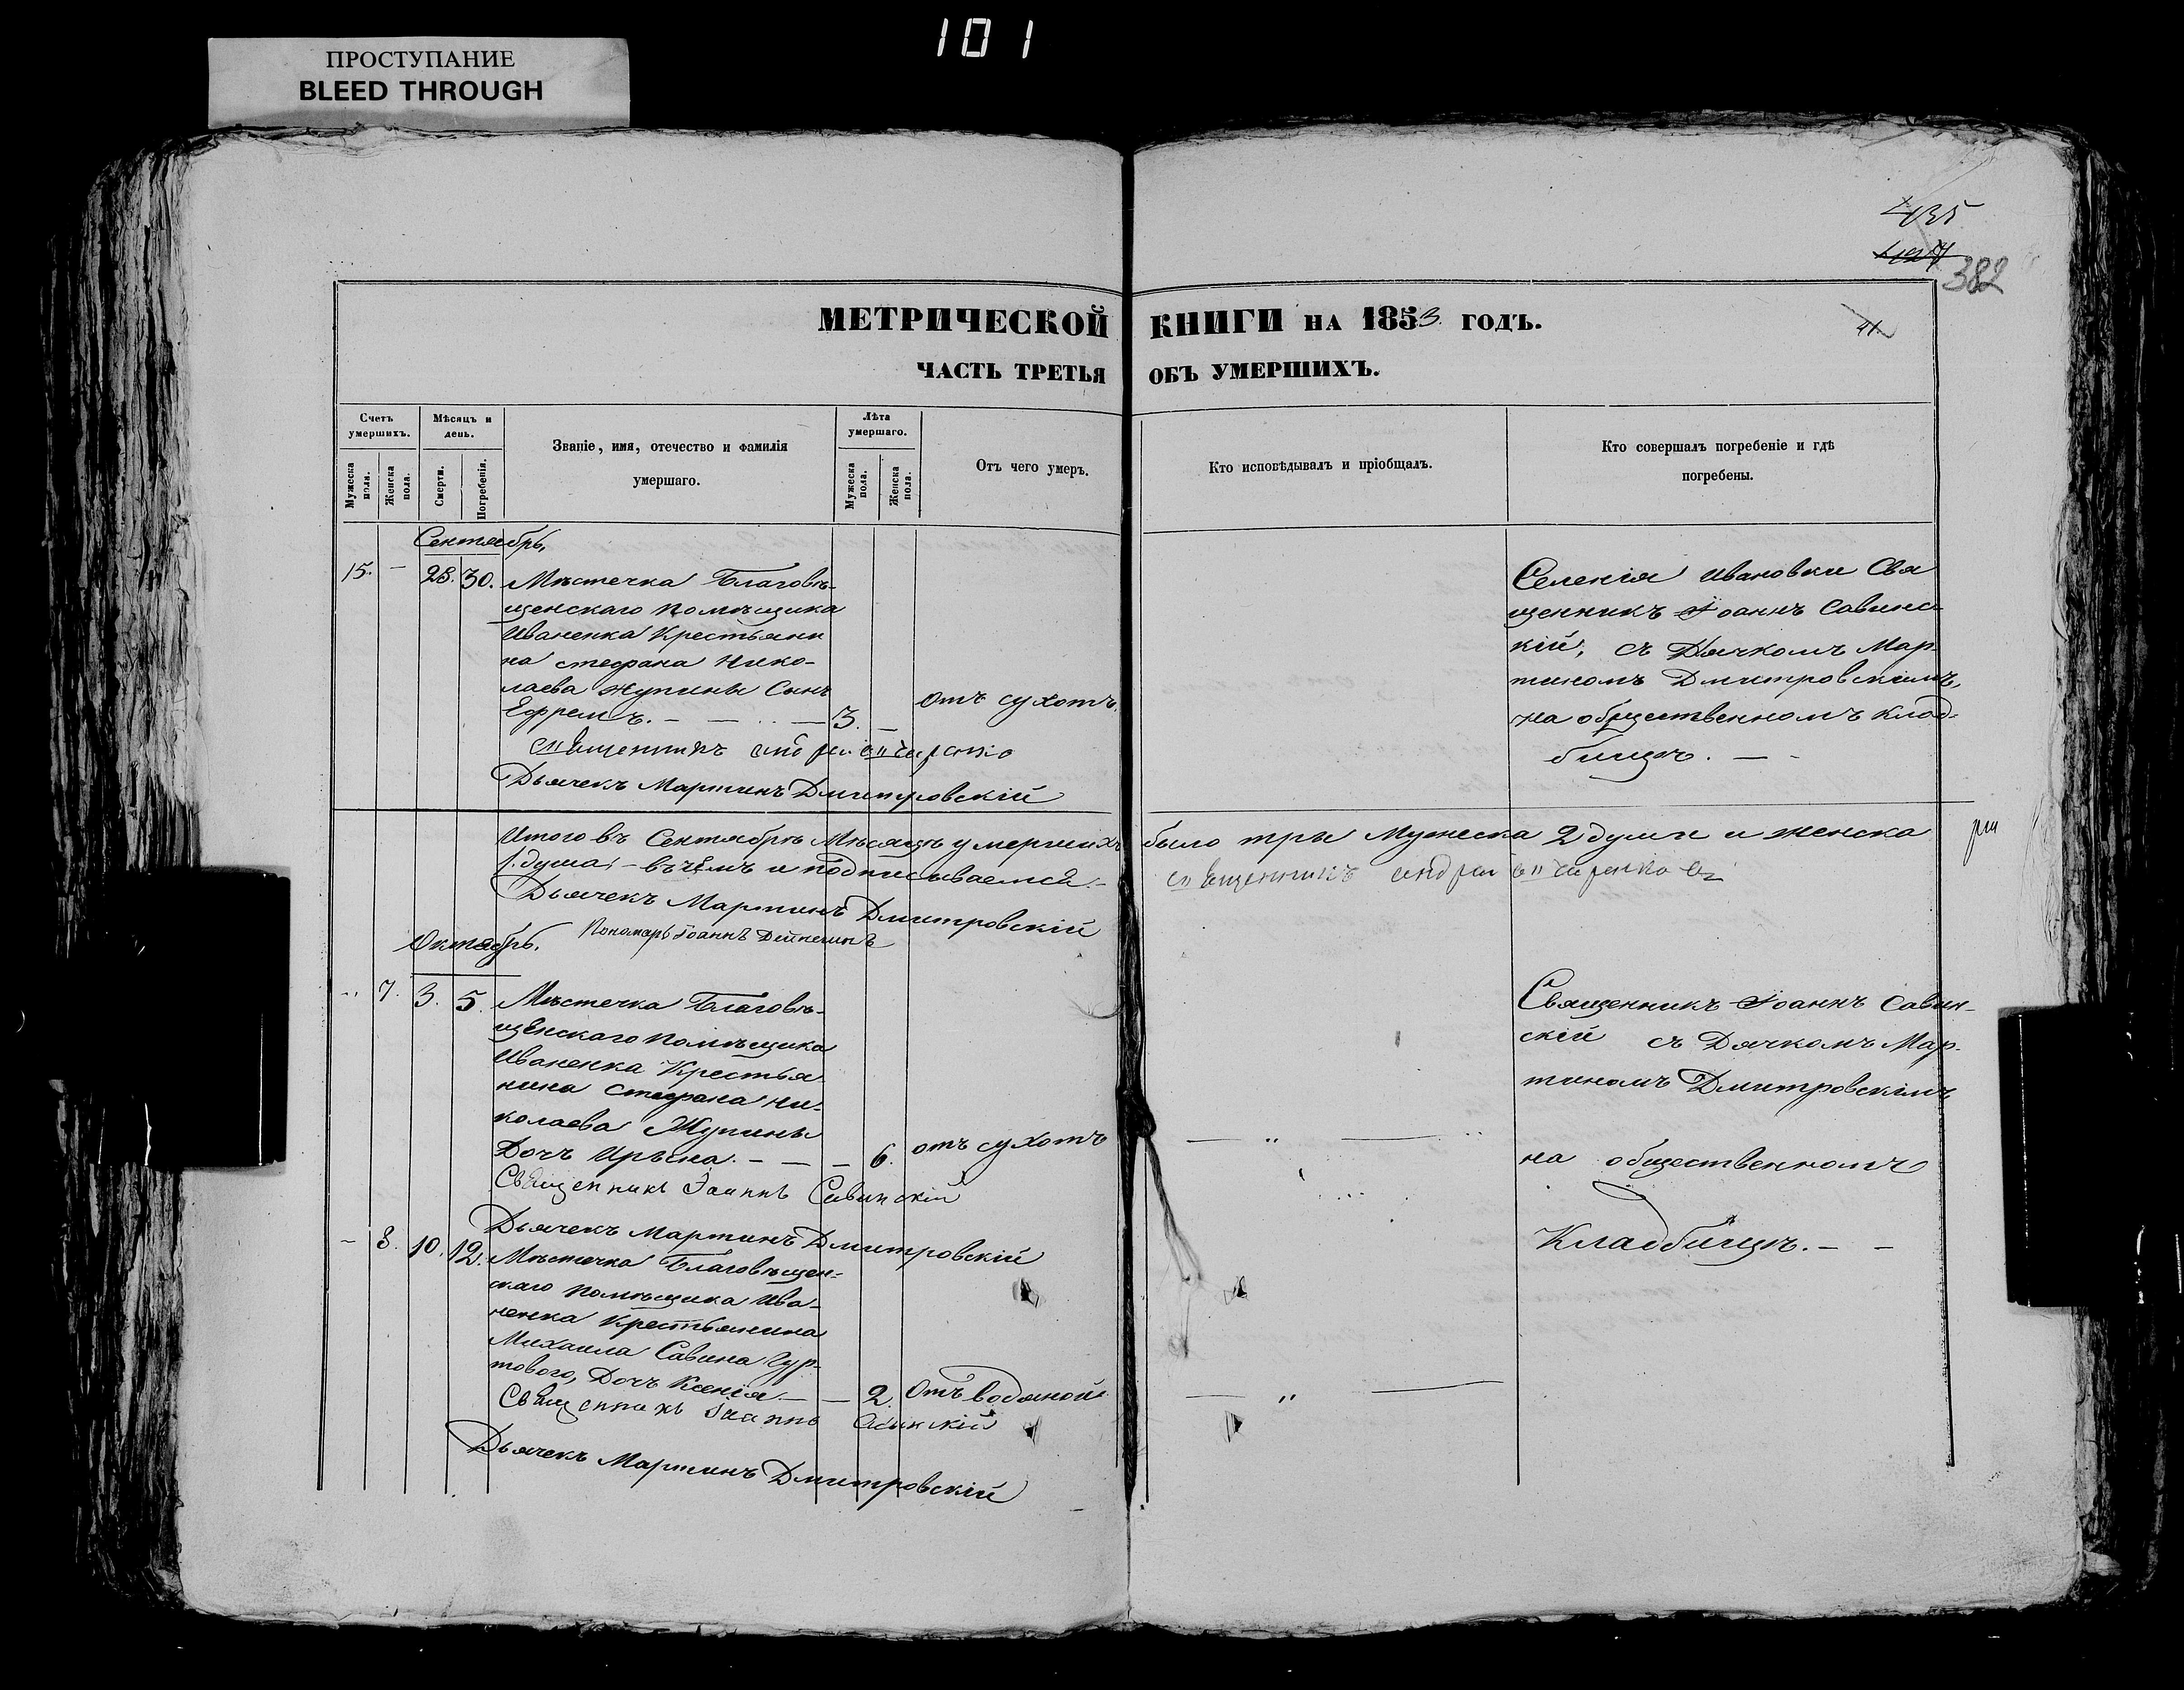 101
ПРОСТУПАНИЕ
BLEED THROUGH
435
382
41.
МЕТРИЧЕСКОЙ КНИГИ НА 1853. ГОДЪ.
ЧАСТЬ ТРЕТЬЯ ОБЪ УМЕРШИХЪ.
Счетъ умершихъ.
Мужеска пола.
Женска пола.
Мѣсяцъ и день.
Смерти.
Погребенія.
Званіе, имя, отечество и фамилія
умершаго.
Лѣта умершаго.
Мужеска пола.
Женска пола.
Отъ чего умеръ.
Кто исповѣдывалъ и пріобщалъ.
Кто совершалъ погребеніе и гдѣ
погребены.
Сентябрь.
15. — 28. 30. Мѣстечка Благовѣ-
щенскаго помѣщика
Иваненка Крестьяни
на Стефана Нико-
лаева Жупины Сынъ
Ефремъ. — — — 3. — отъ сухотъ.
Дьячекъ Мартинъ Дмитровскій
Селенія Ивановки Свя
щенникъ Іоаннъ Савинс
кій, съ Дячкомъ Мар-
тиномъ Дмитровскимъ,
на общественномъ клад-
бищѣ. — -
Итого въ Сентябрѣ Мѣсяцѣ умершихъ было три Мужеска 2 души и женска
1. душа, — въ чёмъ и подписываемся. —
Дьячекъ Мартинъ Дмитровскій
Пономарь Іоаннъ
Октябрь.
7. 3. 5. Мѣстечка Благовѣ-
щенскаго помѣщика
Иваненка Крестья
нина Стефана Ни-
колаева Жупины
Дочь Ирына. — — — 6. отъ сухотъ
Священникъ Іоаннъ Савинскій
Дьячекъ Мартинъ Дмитровскій
— „ —
Священникъ Іоаннъ Савин-
скій съ Дячкомъ Мар-
тиномъ Дмитровскимъ
на общественномъ
Кладбищѣ. — —
- 8. 10. 12. Мѣстечка Благовѣщен-
скаго помѣщика Ива-
ненка Крестьянина
Михаила Савина Гур-
тового, Дочь Ксенія. — — 2. Отъ водяной
Священникъ Іоаннъ Савинскій
Дьячекъ Мартинъ Дмитровскій
— „ —